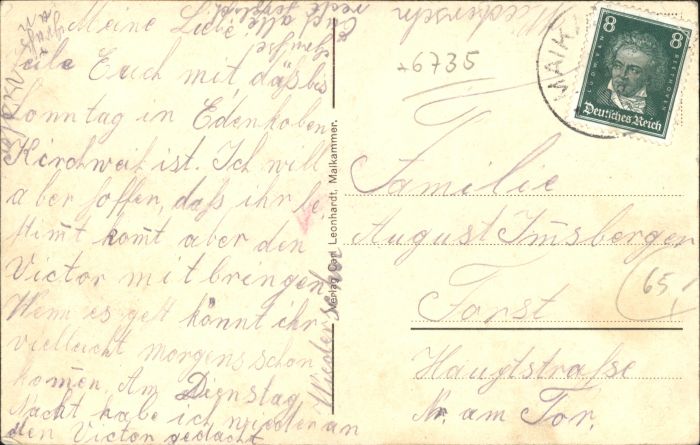 Meine Liebe
teile Euch mit, daß bis
Sonntag in Edenkoben
Kirchweih ist. Ich will
aber hoffen, daß ihr be-
stim̄t kom̄t aber den
Victor mitbringen.
Wenn es get könnt ihr
vielleicht morgens schon
kom̄en. Am Dienstag
Nacht habe ich wieder an
den Victor gedacht.
Wiedersehen
alle
Verlag Carl Leonhardt, Maikammer.
+6735
MAIK
8 8
LUDWIG VAN BEETHOVEN
Deutsches Reich
Familie
August Im̄sberger
Forst
65
Hauptstraße
Nr. am Tor.